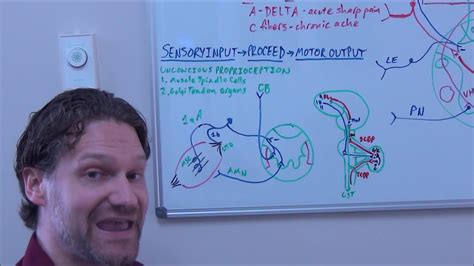 A-DELTA - acute sharp pain
C fibers - chronic ache
SENSORY INPUT → PROCEED → MOTOR OUTPUT
UNCONCIOUS PROPRIOCEPTION
1. Muscle Spindle Cells
2. Golgi Tendon Organs
CB
LE
1aA
1b
GTO
MSC
AMN
PN
VM
CST